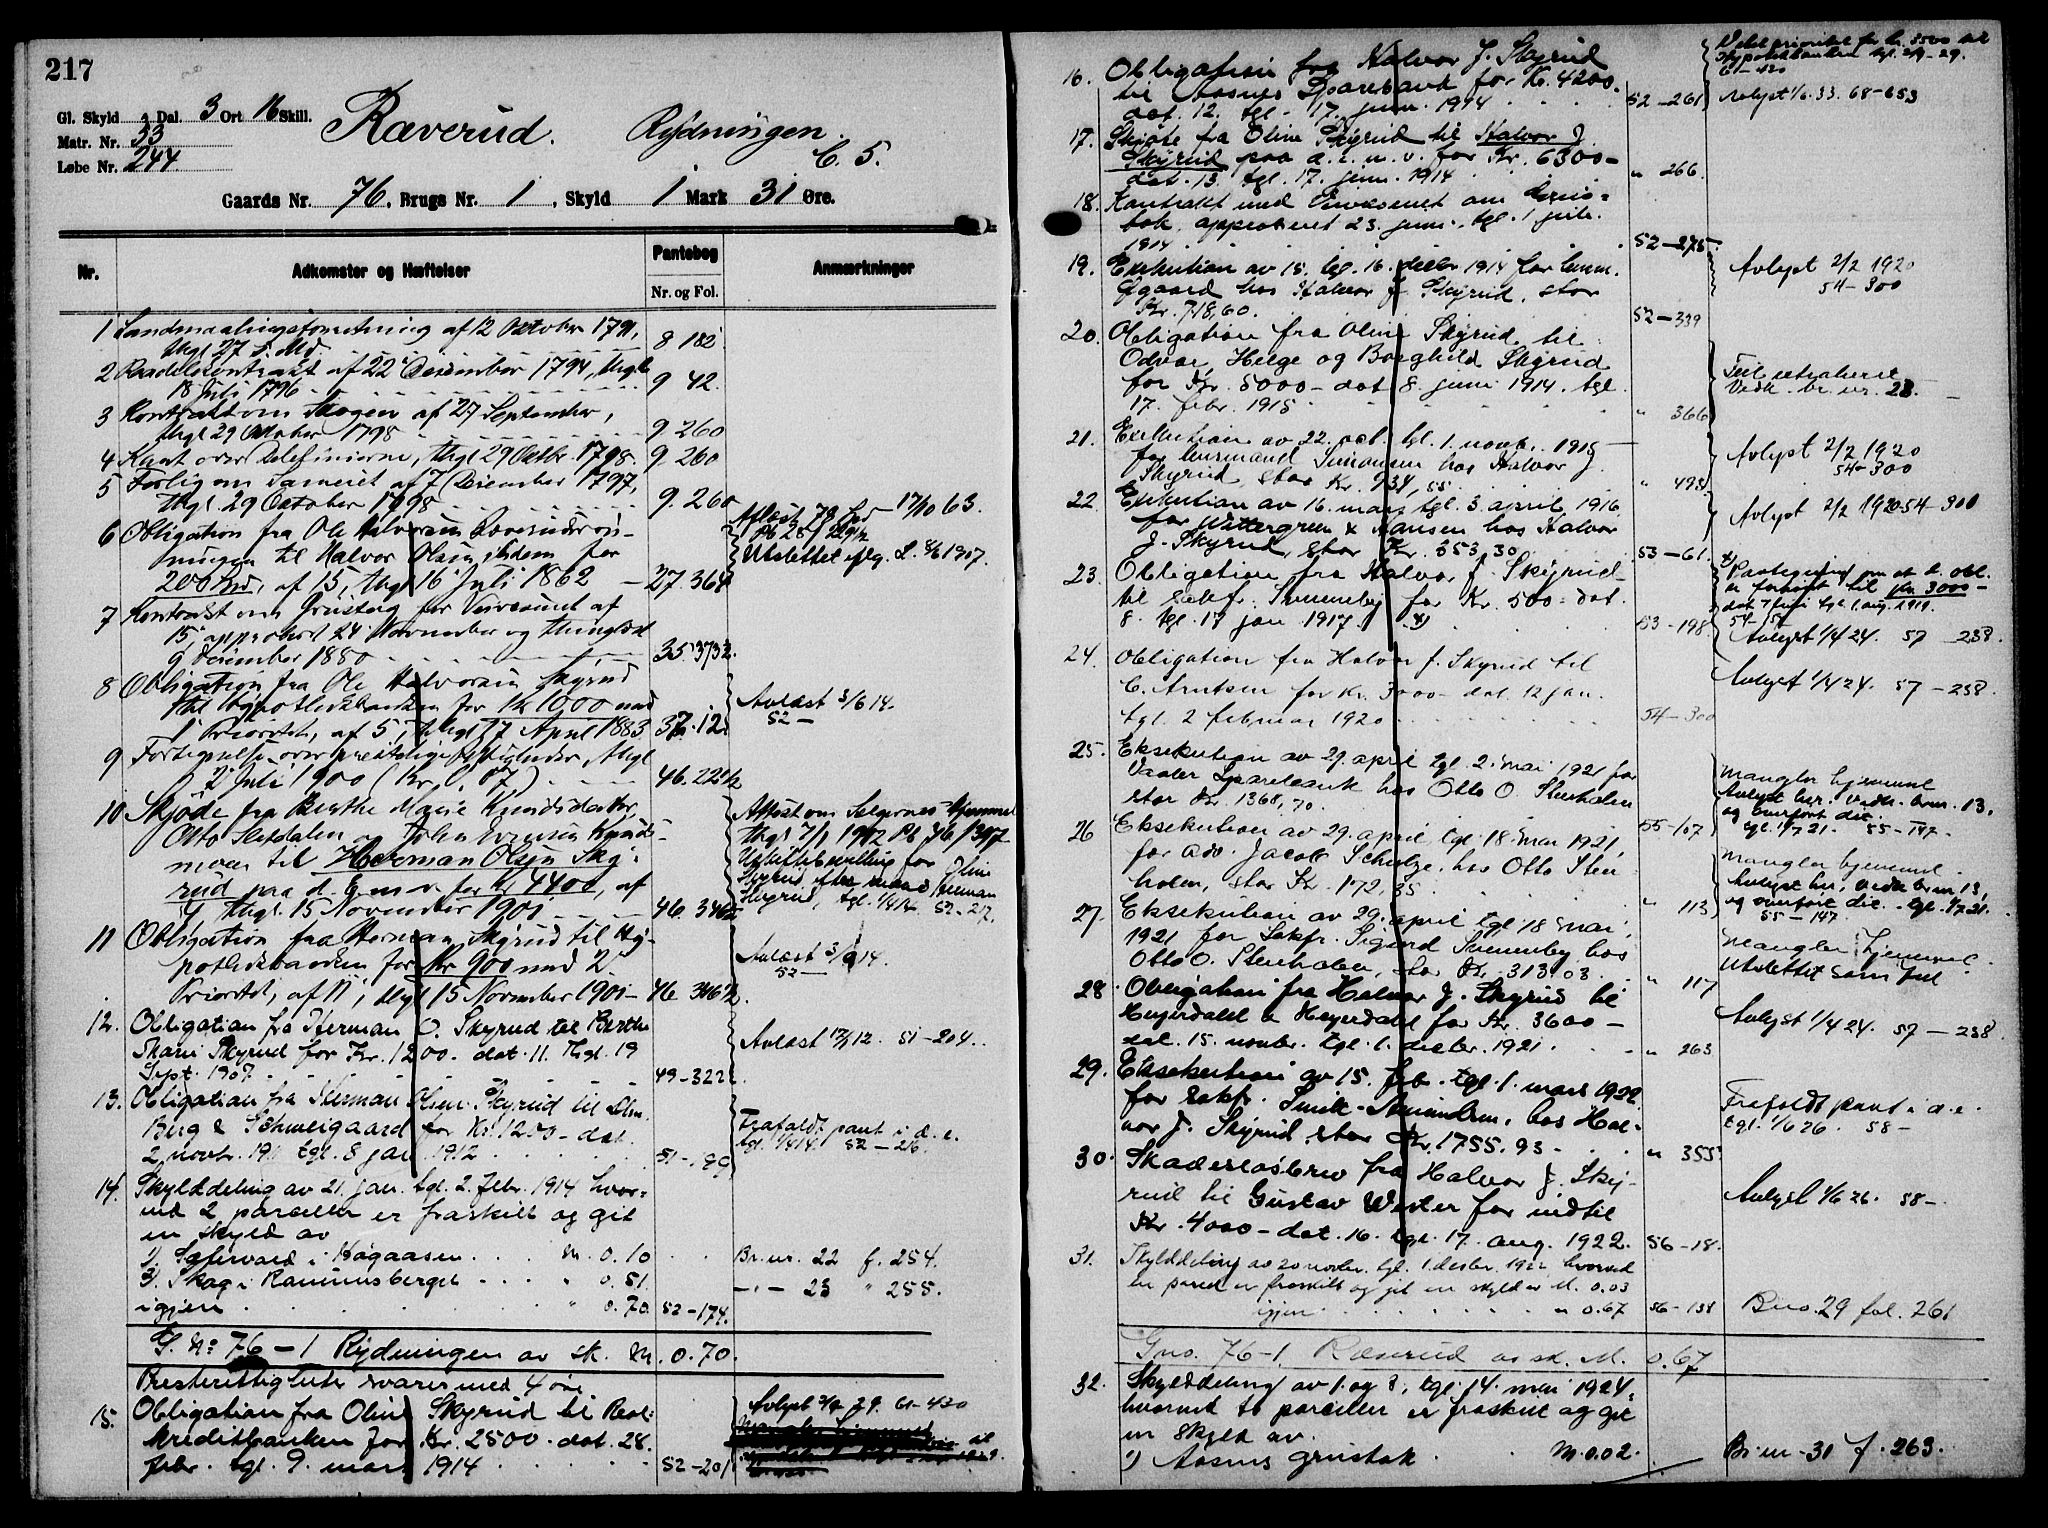 217
Gl. Skyld - Dal. 3 Ort 16 Skill.
Matr. Nr. 53
Løbe Nr. 244.
Ræverud. Rydningen.
C. 5.
Gaards Nr. 76, Brugs Nr. 1, Skyld 1 Mark 31 Øre.
Nr. Adkomster og Hæftelser Pantebog Anmærkninger
Nr. og Fol.
1 Landmaalingsforretning af 12 Oktober 1791,
thgl 27 s. Md. 8 182
2 Raadelskontrakt af 22 December 1794, thgl
18 Juli 1796 9 42.
3 Kontrakt om Skogen af 27 September,
thgl 29 Oktober 1798 9 260
4 Kart over Delelinierne, thgl 29 Oktbr. 1798. 9 260
5 Forlig om Sameiet af 7 December 1797,
thgl. 29 October 1798 9. 260
6 Obligation fra Ole Halvorsen
ningen til Halvor Olsen ibidem for
200 Spd, af 15, thgl 16 Juli 1862 27. 364
17/10 63.
Udslettet eflg. L. 8/6 1907.
7 Kontrakt om Grustag for Veivæsenet af
15, approbert 24 November og thinglæst
9 December 1880 35 373 b.
8 Obligation fra Ole Halvorsen Skyrud
til Hypothekbanken for Kr 1000 med
1 Prioritet, af 5, thgl 27 April 1883 37. 12
Avlæst 3/6 14.
52 —
9 Fortegnelse over præstelige Rettigheder, thgl
2 Juli 1900 (Kr. 0,07) 46. 221 b
10 Skjøde fra Berthe Marie Knudsdatter,
Otto Sletdalen og John Evensen Kynds-
moen til Herman Olsen Sky-
rud paa d. E. m v. for Kr 4400, af
9 thgl. 15 November 1901. 46. 346
Attest om Selgernes Hjemmel
thgl 7/1 1902 Pb 46/347
Uskiftebevilling for Oline
Skyrud efter mand Herman
Skyrud, tgl. 1/4 14. 52-217.
11 Obligation fra Herman Skyrud til Hy-
pothekbanken for Kr 900 med 2
Prioritet, af 11, thgl 15 November 1901 46 346 b.
Avlæst 3/6 14.
52 —
12. Obligation fra Herman O. Skyrud til Berthe
Marie Skyrud for Kr. 1200. dat. 11. thgl. 19
Sept. 1907. 49-322.
Avlæst 17/12. 51-204.
13. Obligation fra Herman Olsen Skyrud til Chr.
Berg & Schweigaard for Kr. 1200- dat.
2 novbr. 1911 tgl. 8 jan 1912 51-199
Frafaldt pant i d. e.
tgl. 1/4 14. 52-216.
14. Skylddeling av 21. jan. tgl. 2. febr. 1914 hvor-
ved 2 parceller er fraskilt og git
en skyld av
1). Sæterværd i Høgaasen M. 0.10 Br. nr. 22 f. 254.
2). Skog i Ramunsberget " 0.51 -"- 23 " 255.
igjen " 0.70. 52-174.
G. No 76-1 Rydningen av sk. M. 0.70.
Presterettigheter svares med 4 øre.
15. Obligation fra Oline Skyrud til Real-
kreditbanken for Kr. 2500. dat. 28.
febr. tgl. 9. mars 1914 52-201
Avlyst 29. 61-420
16. Obligation fra Halvor J. Skyrud
til Aasnes Sparebank for Kr. 4200.
dat. 12. tgl. 17. juni 1914 52-261
Veket prioritet for kr. 3500 til
Hypotekbanken tgl. 2/9-29.
61-420
Avlyst 1/6. 33. 68-653
17. Skjøte fra Oline Skyrud til Halvor J.
Skyrud paa d. e. m. v. for Kr. 6300-
dat. 13. tgl. 17. juni. 1914 " 266.
18. Kontrakt med Veivæsenet om Grus-
tak, approberet 23. juni. tgl. 1 juli.
1914 52-275.
19. Exekution av 15. tgl. 16. decbr 1914 for
gaard hos Halvor J. Skyrud, stor
Kr. 718,60. 52-339
Avlyst 2/2 1920
54-300
20. Obligation fra Oline Skyrud til
Odvar, Helge og Borghild Skyrud
for Kr. 5000- dat 8. juni 1914. tgl.
17. febr. 1915 " 366
Feil
Vedk. br. nr. 23.
21. Exekution av 22. oct. tgl. 1. novbr. 1915
for Simonsen hos Halvor J.
Skyrud stor Kr. 934,55 " 495.
Avlyst 2/2 1920
54-300
22. Exekution av 16. mars tgl. 3. april 1916
for Wettergreen & Hansen hos Halvor
J. Skyrud, stor Kr. 353,30 53-61.
Avlyst 2/2 1920 54-300
23. Obligation fra Halvor J. Skyrud
til sakf. Svenneby for Kr. 500- dat.
8. tgl. 17 jan 1917. x) 53-198.
x) Paategning om at h. obl.
er forhøiet til kr. 3000-
dat 7 juni tgl. 1. aug. 1919.
54-51
Avlyst 1/4 24. 57-238.
24. Obligation fra Halvor J. Skyrud til
C. Arntsen for Kr. 3000- dat. 12 jan.
tgl. 2 februar 1920 54-300
Avlyst 1/4 24. 57-238.
25. Eksekution av 29. april tgl. 2. mai 1921 for
Vaaler Sparebank hos Otto O. Stenholen
stor Kr. 1368,70. 55-107
Mangler hjemmel
Avlyst her. Vedk. br. nr. 13.
og overført dit.
tgl. 1/7 21. 55-147.
26 Eksekution av 29. april, tgl. 18 mai 1921,
for adv. Jacob Schulze, hos Otto Sten-
holen, stor Kr. 172,35 " 113
Mangler hjemmel.
Avlyst her, vedk br. nr. 13,
og overført dit. tgl. 1/7 21.
55-147
27. Eksekution av 29. april tgl 18 mai.
1921 for Sakf. Sigurd Svenneby hos
Otto O. Stenholen, stor Kr. 313,03 " 117
Mangler hjemmel
Utslettet som feil
28 Obligation fra Halvor J. Skyrud til
Heyerdahl & Heyerdahl for Kr. 3600-
dat. 15. novbr. tgl. 1. decbr. 1921. " 263
Avlyst 1/4 24. 57-238.
29. Eksekution av 15. feb. tgl. 1. mars 1922
for Sakfr. Smith-Amundsen, hos Hal-
vor J. Skyrud stor Kr. 1755.93- " 353
Frafaldt pant i d. e.
tgl. 1/6 26. 58-
30. Skadesløsbrev fra Halvor J. Sky-
rud til Gustav Wester for indtil
Kr. 4000- dat. 16. tgl. 17. aug. 1922. 56-18.
Avlyst 1/6 26. 58-
31. Skylddeling av 20 novbr. tgl. 1 decbr. 1922 hvorved
en parcel er fraskilt og git en skyld av M. 0.03
igjen " 0.67 56-138 Bno. 29 fol. 261
Gno. 76-1 Ræverud av sk. M. 0.67
32. Skylddeling av 1. og 8, tgl. 14. mai 1924,
hvorved to parceller er fraskilt og git
en skyld av.
1) Aasnes grustak M. 0.02. Br. nr - 31 f. 263.